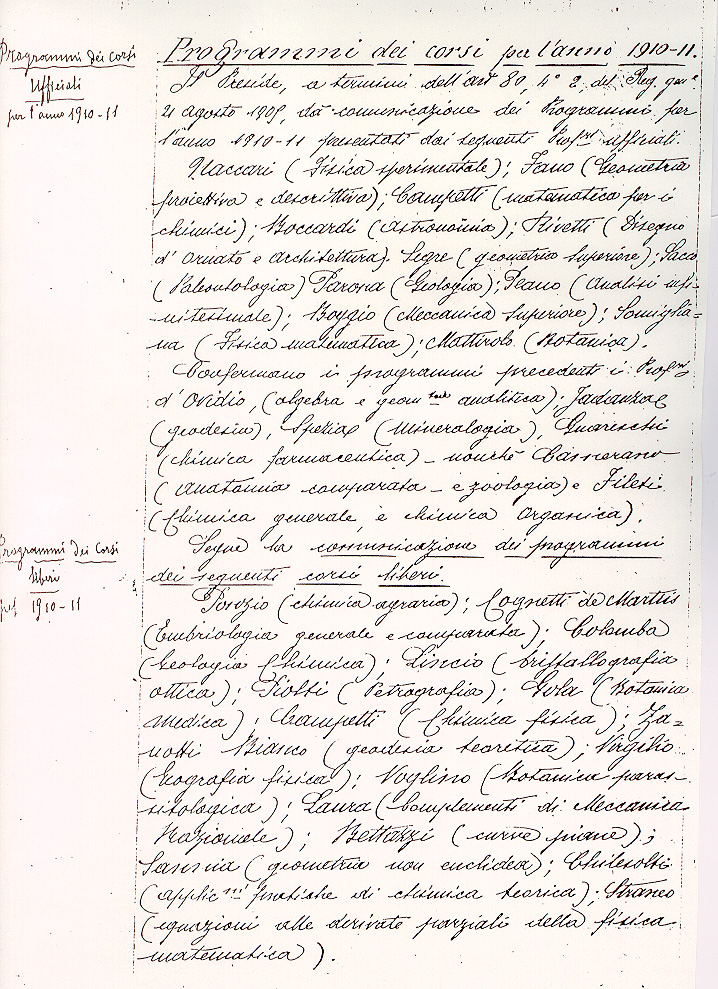 Programmi dei corsi
Ufficiali
per l'anno 1910-11
Programmi dei corsi per l'anno 1910-11.
Il Preside, a termini dell'art 80, 4° 2. del Reg. genle
21 agosto 1905, dà comunicazione dei Programmi per
l'anno 1910-11 presentati dai seguenti Profssri ufficiali.
Naccari (Fisica sperimentale); Fano (Geometria
proiettiva e descrittiva); Campetti (matematica per i
chimici); Boccardi (Astronomia); Rivetti (Disegno
d'Ornato e architettura). Segre (geometria superiore); Sacco
(Paleontologia) Parona (Geologia); Peano (Analisi infi-
nitesimale); Boggio (Meccanica Superiore); Somiglia-
na (Fisica matematica); Mattirolo (Botanica).
Confermano i programmi precedenti i Profssri
d'Ovidio, (algebra e geom analitica); Jadanza e
(geodesia), Spezia (Mineralogia), Guareschi
(chimica farmaceutica) - nonchè Camerano
(anatomia comparata - e zoologia) e Fileti
(Chimica generale, e chimica Organica).
Segue la comunicazione dei programmi
dei seguenti corsi liberi.
Programmi dei Corsi
liberi
pel 1910-11
Porozio (chimica agraria); Cognetti de Martiis
(Embriologia generale e comparata); Colomba
(Geologia Chimica); Lincio (Cristallografia
ottica); Piolti (Petrografia); Gola (Botanica
medica); Campetti (Chimica fisica); Za-
notti Bianco (geodesia teoritica); Virgilio
(Geografia fisica); Voglino (Botanica paras-
sitologica); Laura (Complementi di Meccanica
Razionale); Bettazzi (curve piane);
Sannia (geometria non euclidea); Chilesotti
(applicni pratiche di chimica teorica); Straneo
(equazioni alle derivate parziali della fisica
matematica).